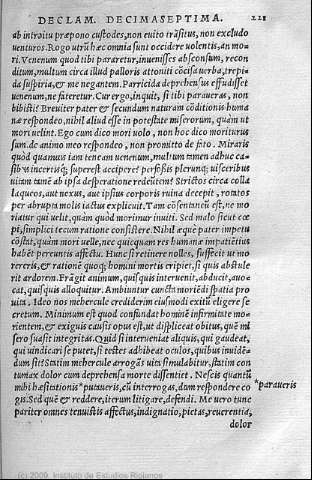 DECLAM. DECIMASEPTIMA. 221
ab introitu præpono custodes, non euito trāsitus, non excludo
uenturos. Rogo utrū hæc omnia sunt occidere uolentis, an mo-
ri. Venenum quod tibi pararetur, inuenisses absconsum, recon
ditum, multum circa illud palloris attoniti cōcisa uerba, trepi-
da suspiria, & me negantem. Parricida deprehensus effudisset
uenenum, ne fateretur. Cur ergo, inquit, si tibi paraueras, non
bibisti? Breuiter pater & secundum naturam cōditionis huma
næ respondeo, nihil aliud esse in potestate miserorum, quàm ut
mori uelint. Ego cum dico mori uolo, non hoc dico moriturus
sum. de animo meo respondeo, non promitto de fato. Miraris
quòd quamuis iam teneam uenenum, multum tamen adhuc ca-
laqueos, aut nexus, aut ipsius corporis ruina decepit,
per abrupta molis iactus explicuit. Tam cōsentaneū est, ne mo
riatur qui uelit, quàm quòd morimur inuiti. Sed malo sicut cœ
pi, simplici tecum ratione consistere. Nihil æquè pater impetu
cōstat, quàm mori uelle, nec quicquam res humanæ impatiētius
habēt percuntis affectu. Hunc si retinere nolles, suffecit ut mo
rereris, & rationē quoq; homini mortis eripiet, si quis abstule
rit ardorem. Frāgit animum, quisquis interuenit, abducit, auo-
cat, quisquis alloquitur. Ambiuntur cuncta moriēdi spatia pro
uita. Ideo nos mehercule crediderim eiusmodi exitū eligere se
cretum. Minimum est quod confundat hominē infirmitate mo-
rientem, & exiguis causis opus est, ut displiceat obitus, quē mi
sero suasit integritas. Quid si interueniat aliquis, qui gaudeat,
qui uindicari se putet, si testes adhibeat oculos, quibus inuidē-
dum sit? Statim mehercule arrogās uita simulabitur, statim con
tumax dolor cum deprehensa morte dissentit. Nescis quantū
mihi hæsitationis * putaueris, cū interrogas, dum respondere co * paraueris
gis. Sed quē & reddere, iterum litigare, defendi. Me uero tunc
pariter omnes tenuistis affectus, indignatio, pietas, reuerentia,
dolor
(c) 2009. Instituto de Estudios Riojanos